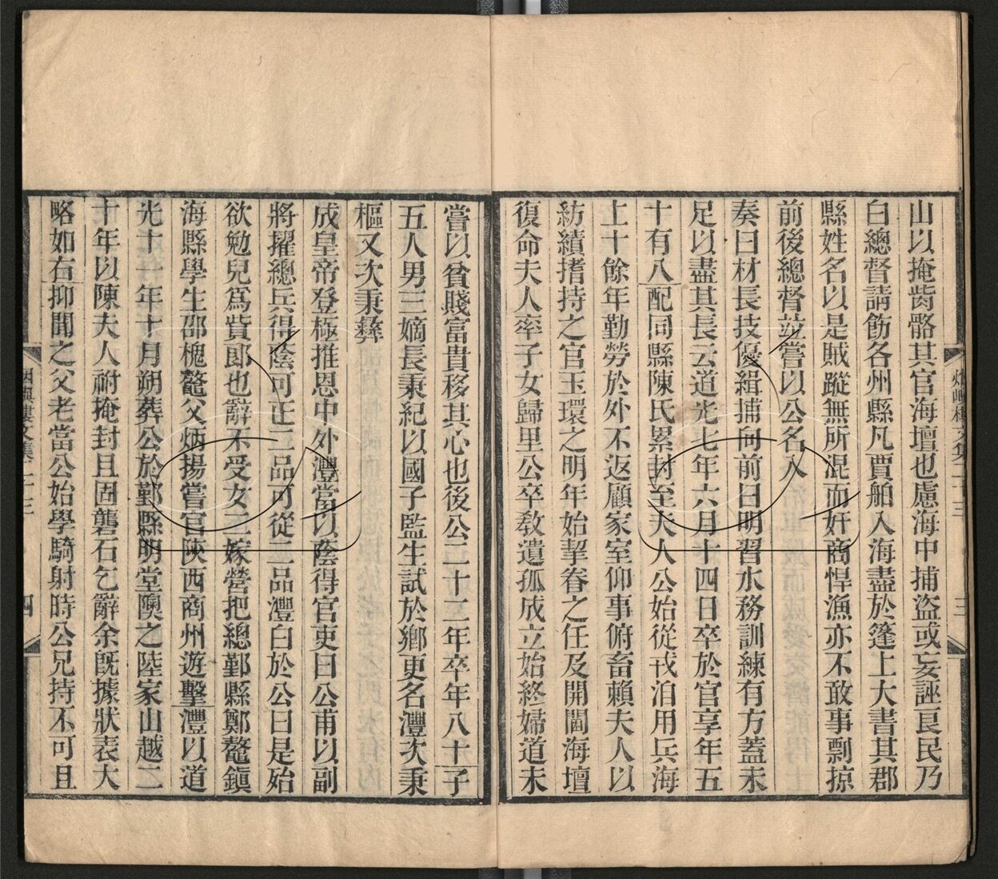 山以掩崗骼其官海壇也慮海中捕盗或妄誣良民乃
白總督請飭各州縣凡賈舶入海盡於篷上大書其郡
縣姓名以是賊蹤無所混而奸商悍漁亦不敢事剽掠
前後總督並嘗以公名入
奏曰材長技優緝捕向前曰明習水務訓練有方蓋未
足以盡其長云道光七年六月十四日卒於官享年五
十有八配同縣陳氏累封至夫人公始從戎洎用兵海
上十餘年勤勞於外不返顧家室仰事俯畜賴夫人以
紡績搘持之官玉環之明年始挈眷之任及開閫海壇
復命夫人率子女歸里公卒敎遺孤成立始終婦道未
嘗以貧賤富貴移其心也後公二十二年卒年八十子
五人男三嫡長秉紀以國子監生試於鄉更名灃次秉
樞又次秉彝
成皇帝登極推恩中外灃當以蔭得官吏曰公甫以副
將擢總兵得蔭可正二品可從二品灃白於公曰是殆
欲勉兒爲貲郎也辭不受女二嫁營把總鄞縣鄭鼇鎭
海縣學生邵槐鼇父炳揚嘗官陜西商州遊擊灃以道
光十一年十月朔葬公於鄞縣明堂隩之陸家山越二
十年以陳夫人祔掩封且固礱石乞辭余旣據狀表大
略如右抑聞之父老當公始學騎射時公兄持不可且
煙嶼樓文集 二十三
三
煙嶼樓文集 二十三
四